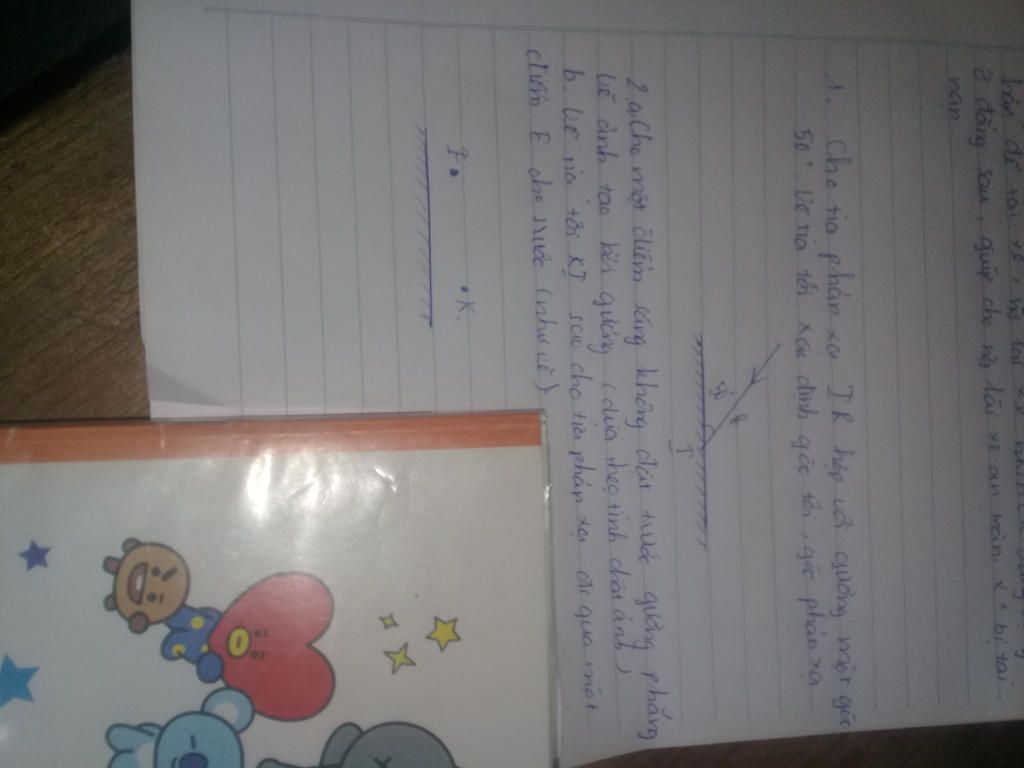 bản để tài xế,
ở đằng sau, giúp cho người lái xe an toàn x' bị tai
nạn
1. Cho tia phản xạ IR hợp với gương một góc
50°. Vẽ tia tới xác định góc tới, góc phản xạ
50°
R
I
2. a. Cho một điểm sáng không đặt trước gương phẳng
Vẽ ảnh tạo bởi gương (dựa theo tính chất ảnh)
b. Vẽ tia tới KI sao cho tia phản xạ đi qua một
điểm E cho trước (như vẽ)
E.
.K.